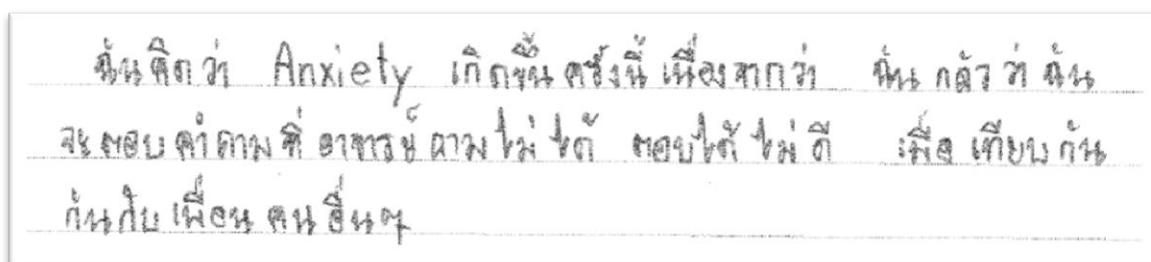 ฉันคิดว่า Anxiety เกิดขึ้นครั้งนี้เนื่องจากว่า ฉันกลัวว่าฉัน
จะตอบคำถามที่อาจารย์ถามไม่ได้ ตอบได้ไม่ดี เมื่อเทียบกัน
กันกับเพื่อนคนอื่นๆ